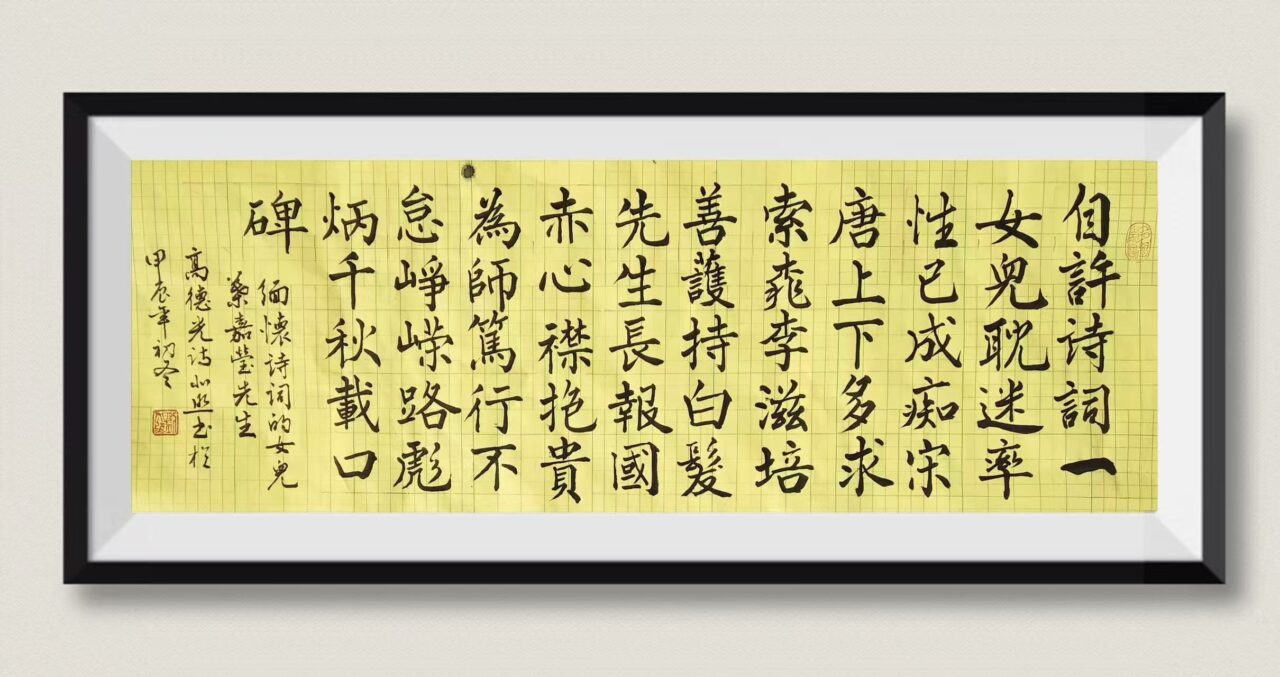 自許詩詞一
女兒耽迷率
性已成痴宋
唐上下多求
索桃李滋培
善護持白髮
先生長報國
赤心襟抱貴
為師篤行不
怠崢嶸路彪
炳千秋載口
碑
緬懷詩詞的女兒
葉嘉瑩先生
高德光詩
甲辰年初冬